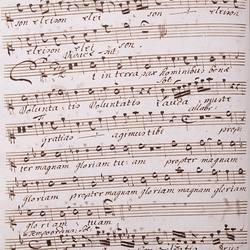 son eleison elei son
eleison elei son.
t in terra pax Hominibus bonae
Volunta: tis Voluntatis Lauda, mus te
gratias agimus tibi
ter magnam gloriam tu: am propter magnam
gloriam propter magnam gloriam magnam gloriam
gloriam tuam